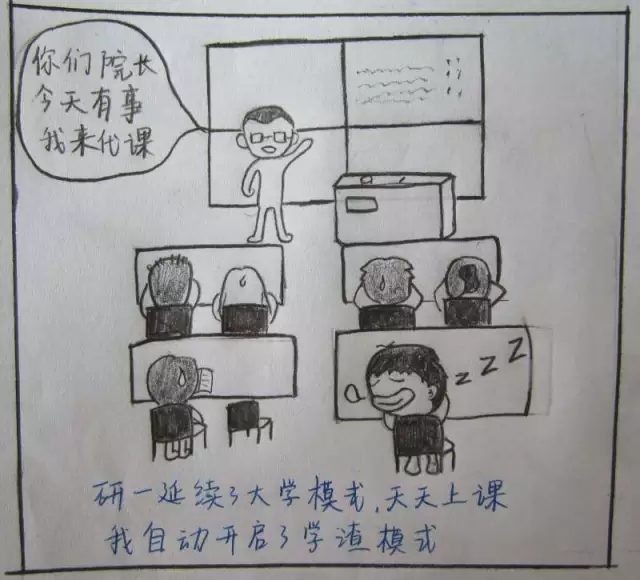 你们院长
今天有事
我来代课
z z z
研一延续了大学模式,天天上课
我自动开启了学渣模式